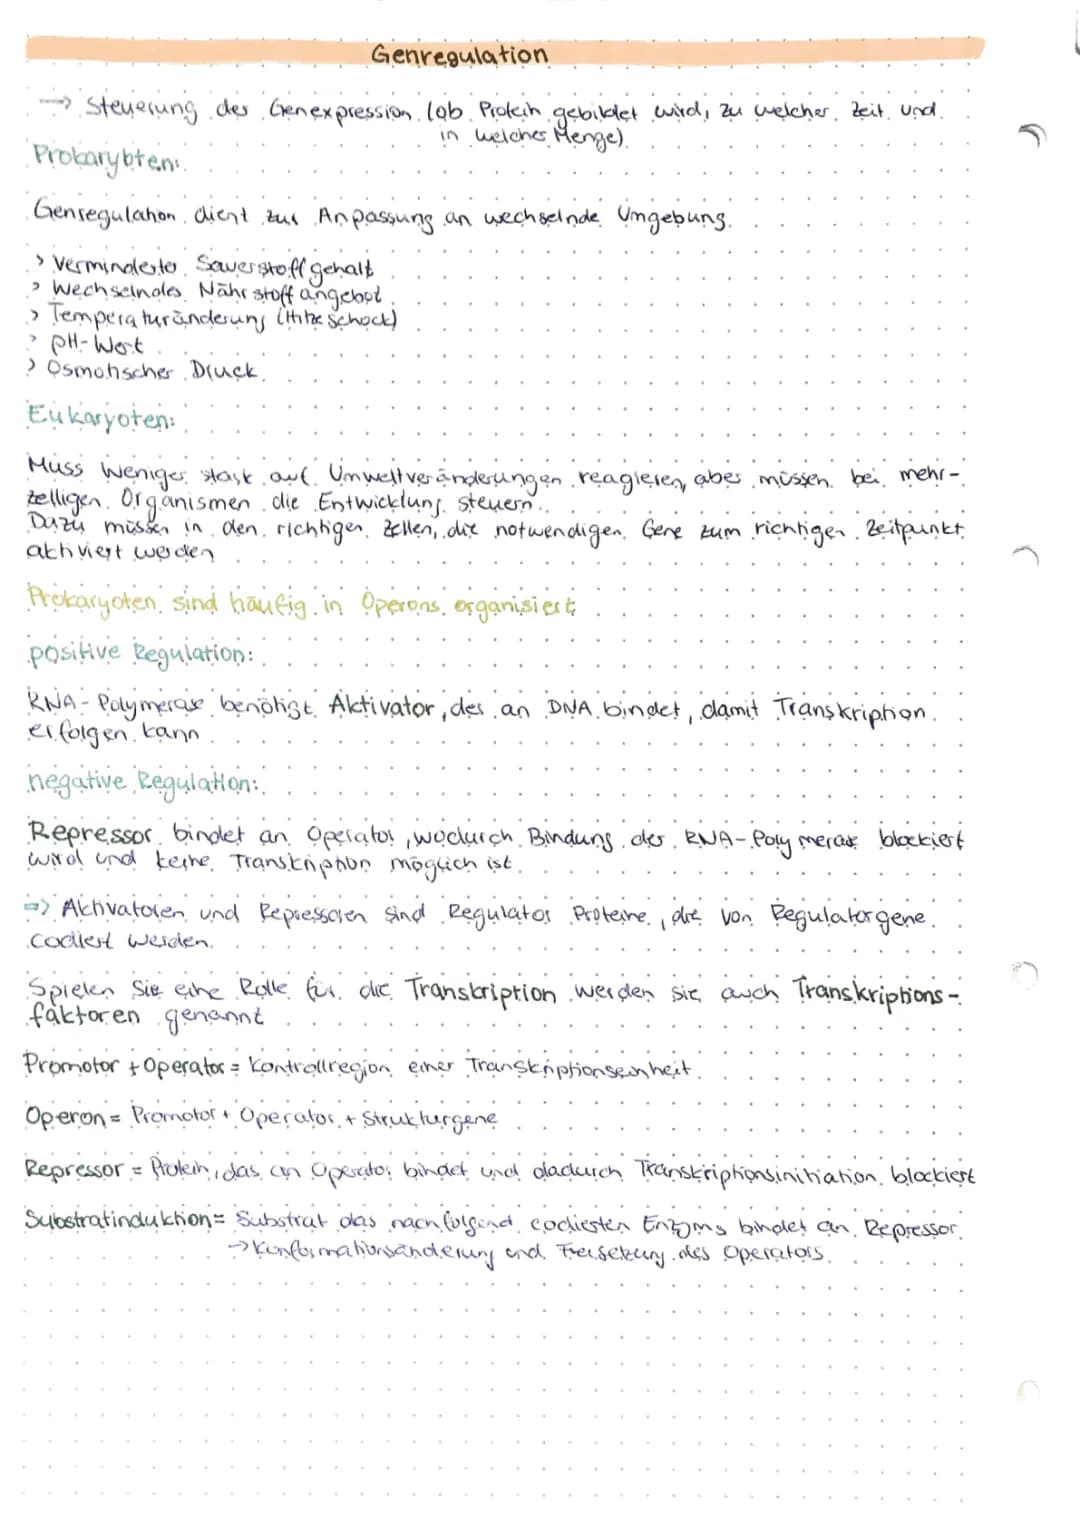 Genregulation
→ Steuerung der Genexpression (ob Protein gebildet wird, zu welcher Zeit und
in welcher Menge)
Prokaryoten:
Genregulation dient zur Anpassung an wechselnde Umgebung.
> verminderter Sauerstoffgehalt
> Wechselndes Nährstoffangebot
> Temperaturänderung (Hitzeschock)
> pH-Wert
> Osmotischer Druck
Eukaryoten:
Muss Weniger stark auf Umweltveränderungen reagieren, aber müssen bei mehr-
zelligen Organismen die Entwicklung steuern.
Dazu müssen in den richtigen Zellen, die notwendigen Gene zum richtigen Zeitpunkt
aktiviert werden
Prokaryoten sind häufig in Operons organisiert
positive Regulation:
RNA-Polymerase benötigt Aktivator, der an DNA bindet, damit Transkription
erfolgen kann
negative Regulation:
Repressor bindet an Operator, wodurch Bindung der RNA-Polymerase blockiert
wird und keine Transkription möglich ist.
=> Aktivatoren und Repressoren sind Regulator Proteine, die von Regulatorgene
codiert werden.
Spielen Sie eine Rolle für die Transkription werden sie auch Transkriptions-
faktoren genannt
Promotor + Operator = Kontrollregion einer Transkriptionseinheit
Operon = Promotor + Operator + Strukturgene
Repressor = Protein, das an Operator bindet und dadurch Transkriptionsinitiation blockiert
Substratinduktion = Substrat das nachfolgend codierten Enzyms bindet an Repressor
→ Konformationsänderung und Freisetzung des Operators.